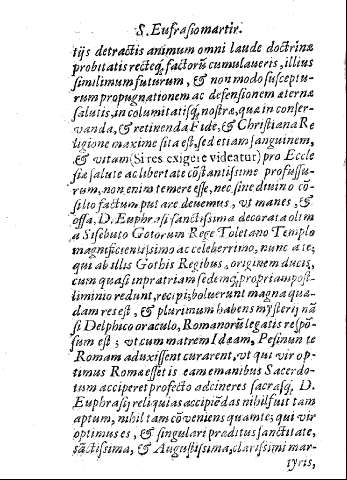 S. Eufrasio martir.
tijs detractis animum omni laude doctrinæ
probitatis recteq́; factorũ cumulaueris, illius
simillimum futurum, & non modo susceptu-
rum propugnationem ac defensionem æternæ
salutis, incolumitatisq́; nostræ, quæ in conser-
vanda, & retinenda Fide, & Christiana Re
ligione maxime sita est, sed etiam sanguinem,
& vitam (Si res exigere videatur) pro Eccle
siæ salute ac libertate cõstantissime profussu-
rum, non enim temere esse, nec sine diuino cõ-
silio factum putare deuemus, vt manes, &
ossa, D. Euphrasi sanctissima decorata olim
a Sisebuto Gotorum Rege Toletano Templo
magnificentissimo ac celeberrimo, nunc a te;
qui ab illis Gothis Regibus, originem ducis,
cum quasi in patriam sedemq́; propriam post
liminio redunt, recipi; boluerunt magna quæ-
dam res est, & plurimum habens mysterij nã
si Delphico oraculo, Romanorũ legatis respõ-
sum est; vt cum matrem Idæam, Pesinunte
Romam aduxissent curarent, vt qui vir op-
timus Romæ esset is eam emanibus Sacerdo-
tum acciperet profecto ad cineres sacrasq́; D.
Euphrasij reliquias accipiẽdas nihil fuit tam
aptum, nihil tam cõveniens quam te; qui vir
optimus es, & singulari præditus sanctitate,
sãctissima, & Augustissima, clarissimi mar-
tyris,